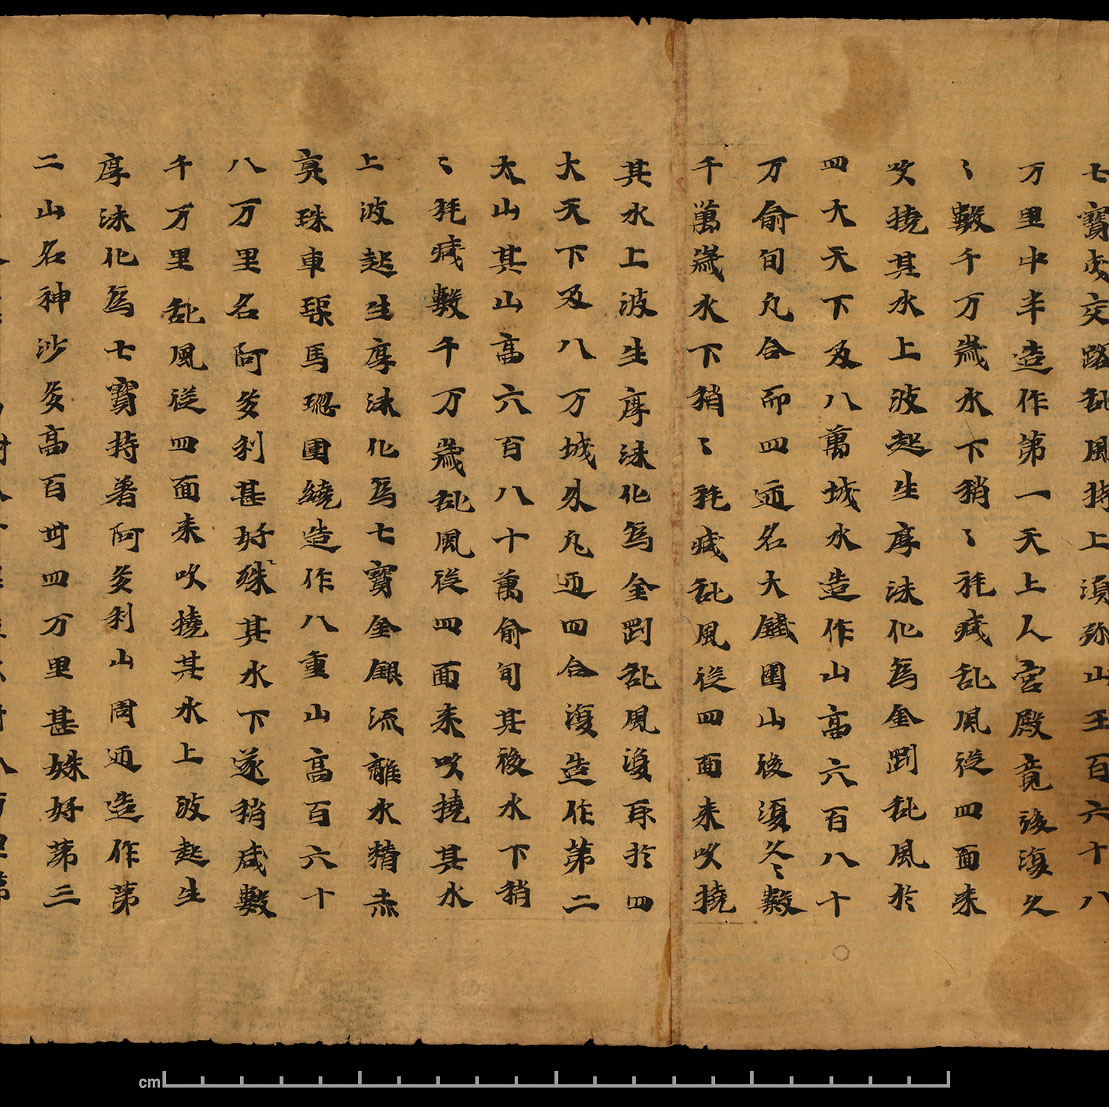 七寶皮交路乱風持上湏弥山王百六十八
万里中半造作第一天上人宮殿竟後復久
〻數千万歲水下稍〻秏減乱風從四面来
吹撓其水上波起生厚沫化為金剛乱風於
四大天下及八萬城水造作山高六百八十
万俞旬凡合而四迊名大鐵圍山後復久〻數
千萬歲水下稍〻秏減乱風從四面来吹撓
其水上波生厚沫化為金剛乱風復取於四
大天下及八万城外凡迊四合復造作第二
大山其山高六百八十萬俞旬其後水下稍
〻秏減數千万歲乱風從四面来吹撓其水
上波起生厚沫化為七寶金銀流離水精赤
真珠車璩馬瑙圍繞造作八重山高百六十
八万里名阿多利甚好殊其水下遂稍減數
千万里乱風從四面来吹撓其水上波起生
厚沫化為七寶持著阿多利山周迊造作第
二山名神沙多高百卌四万里甚姝好第三
cm